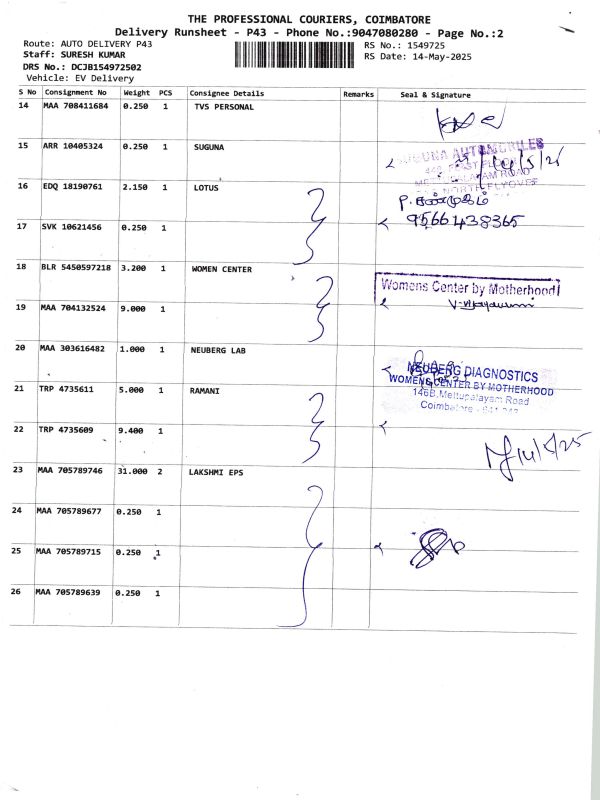 THE PROFESSIONAL COURIERS, COIMBATORE
Delivery Runsheet - P43 - Phone No.:9047080280 - Page No.:2
Route: AUTO DELIVERY P43
Staff: SURESH KUMAR
DRS No.: DCJB154972502
Vehicle: EV Delivery
RS No.: 1549725
RS Date: 14-May-2025
S No Consignment No Weight PCS Consignee Details Remarks Seal & Signature
14 MAA 708411684 0.250 1 TVS PERSONAL
15 ARR 10405324 0.250 1 SUGUNA
SUGUNA AUTOMOBILES
14/5/25
16 EDQ 18190761 2.150 1 LOTUS
P. சண்முகம்
9566438365
17 SVK 10621456 0.250 1
18 BLR 5450597218 3.200 1 WOMEN CENTER
Womens Center by Motherhood
19 MAA 704132524 9.000 1
20 MAA 303616482 1.000 1 NEUBERG LAB
NEUBERG DIAGNOSTICS
WOMENS CENTER BY MOTHERHOOD
146B, Mettupalayam Road
Coimbatore
21 TRP 4735611 5.000 1 RAMANI
22 TRP 4735609 9.400 1
14/5/25
23 MAA 705789746 31.000 2 LAKSHMI EPS
24 MAA 705789677 0.250 1
25 MAA 705789715 0.250 1
26 MAA 705789639 0.250 1